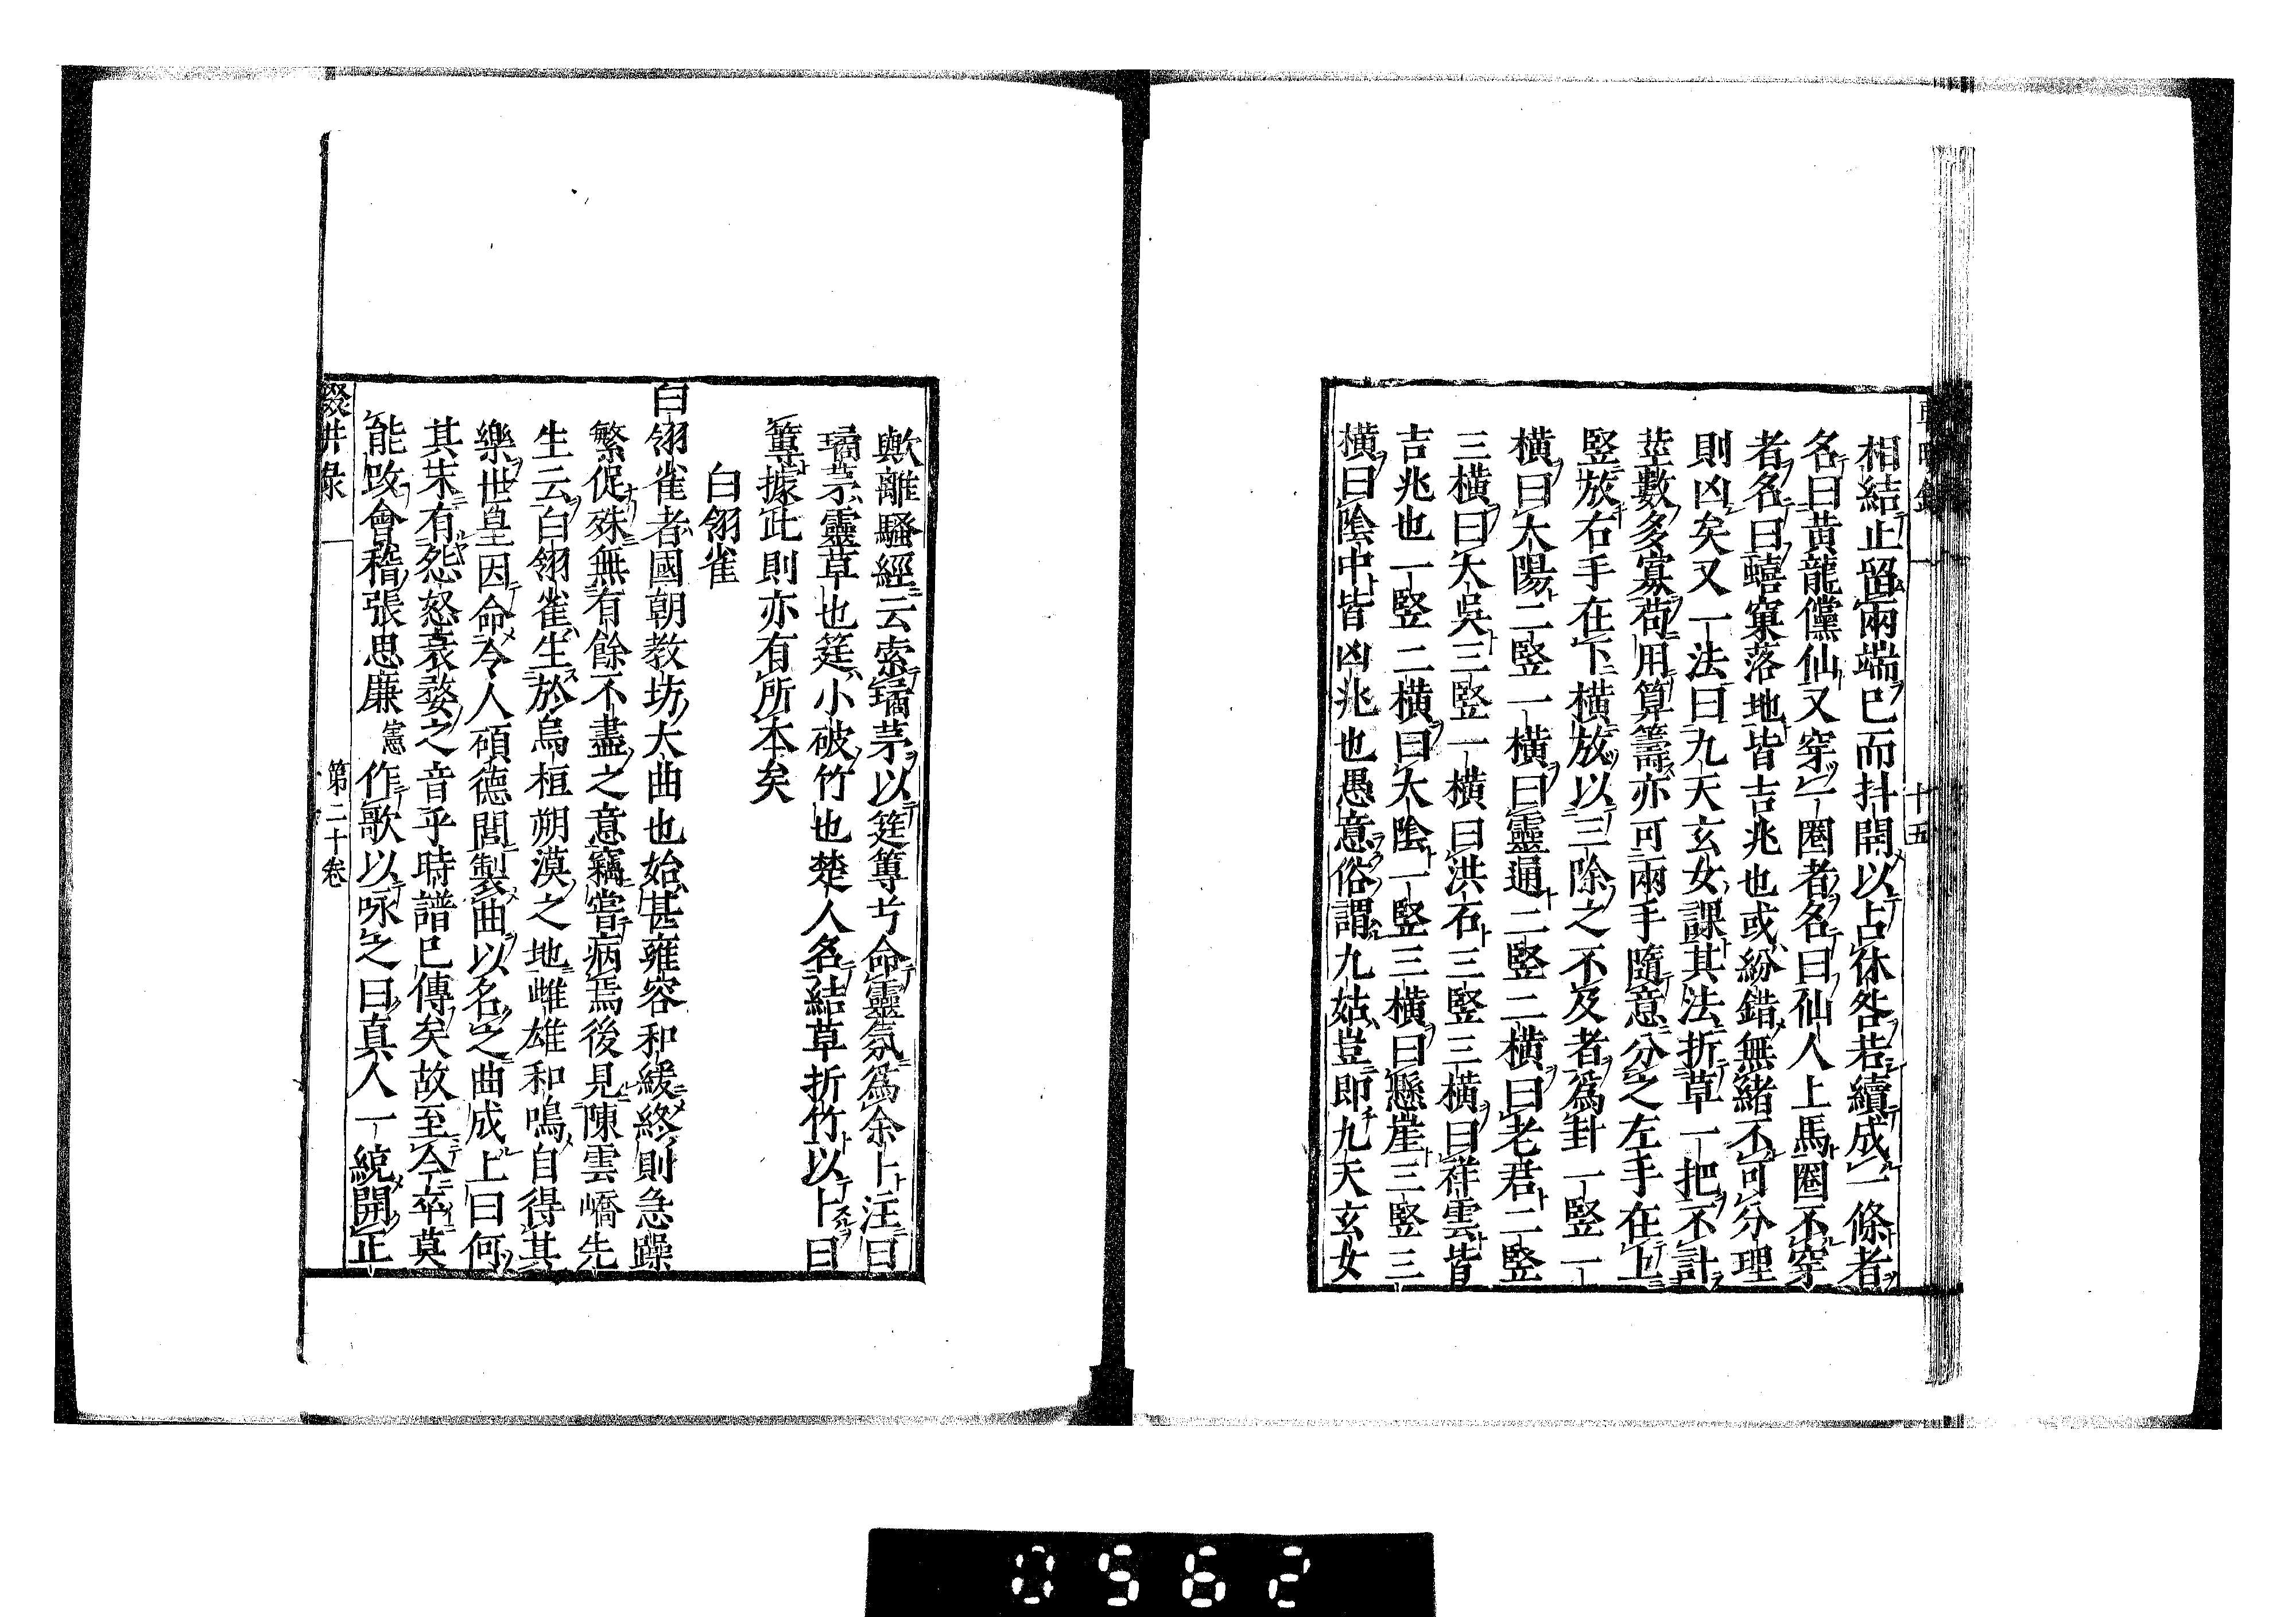 十五
相結止留兩端已而抖開以占休咎若續成一條者
名曰黃龍儻仙又穿一圈者名曰仙人上馬圈不穿
者名曰蟢窠落地皆吉兆也或紛錯無緒不可分理
則凶矣又一法曰九天玄女課其法折草一把不計
莖數多寡苟用算籌亦可兩手隨意分之左手在上
竪放右手在下橫放以三除之不及者爲卦一竪一
橫曰太陽二竪一橫曰靈通二竪二橫曰老君二竪
三橫曰太吳三竪一橫曰洪石三竪三橫曰祥雲皆
吉兆也一竪二橫曰太陰一竪三橫曰懸崖三竪三
橫曰陰中皆凶兆也愚意俗謂九姑豈即九天玄女
歟離騷經云索瓊茅以筳篿兮命靈氛爲余卜注曰
瓊茅靈草也筳小破竹也楚人名結草折竹以卜曰
篿據此則亦有所本矣
白翎雀
白翎雀者國朝教坊大曲也始甚雍容和緩終則急躁
繁促殊無有餘不盡之意竊嘗病焉後見陳雲嶠先
生云白翎雀生於烏桓朔漠之地雌雄和鳴自得其
樂世皇因命令人碩德閭製曲以名之曲成上曰何
其末有怨怒哀嫠之音乎時譜已傳矣故至今卒莫
能改會稽張思廉憲作歌以咏之曰真人一統開正
輟畊錄
第二十卷